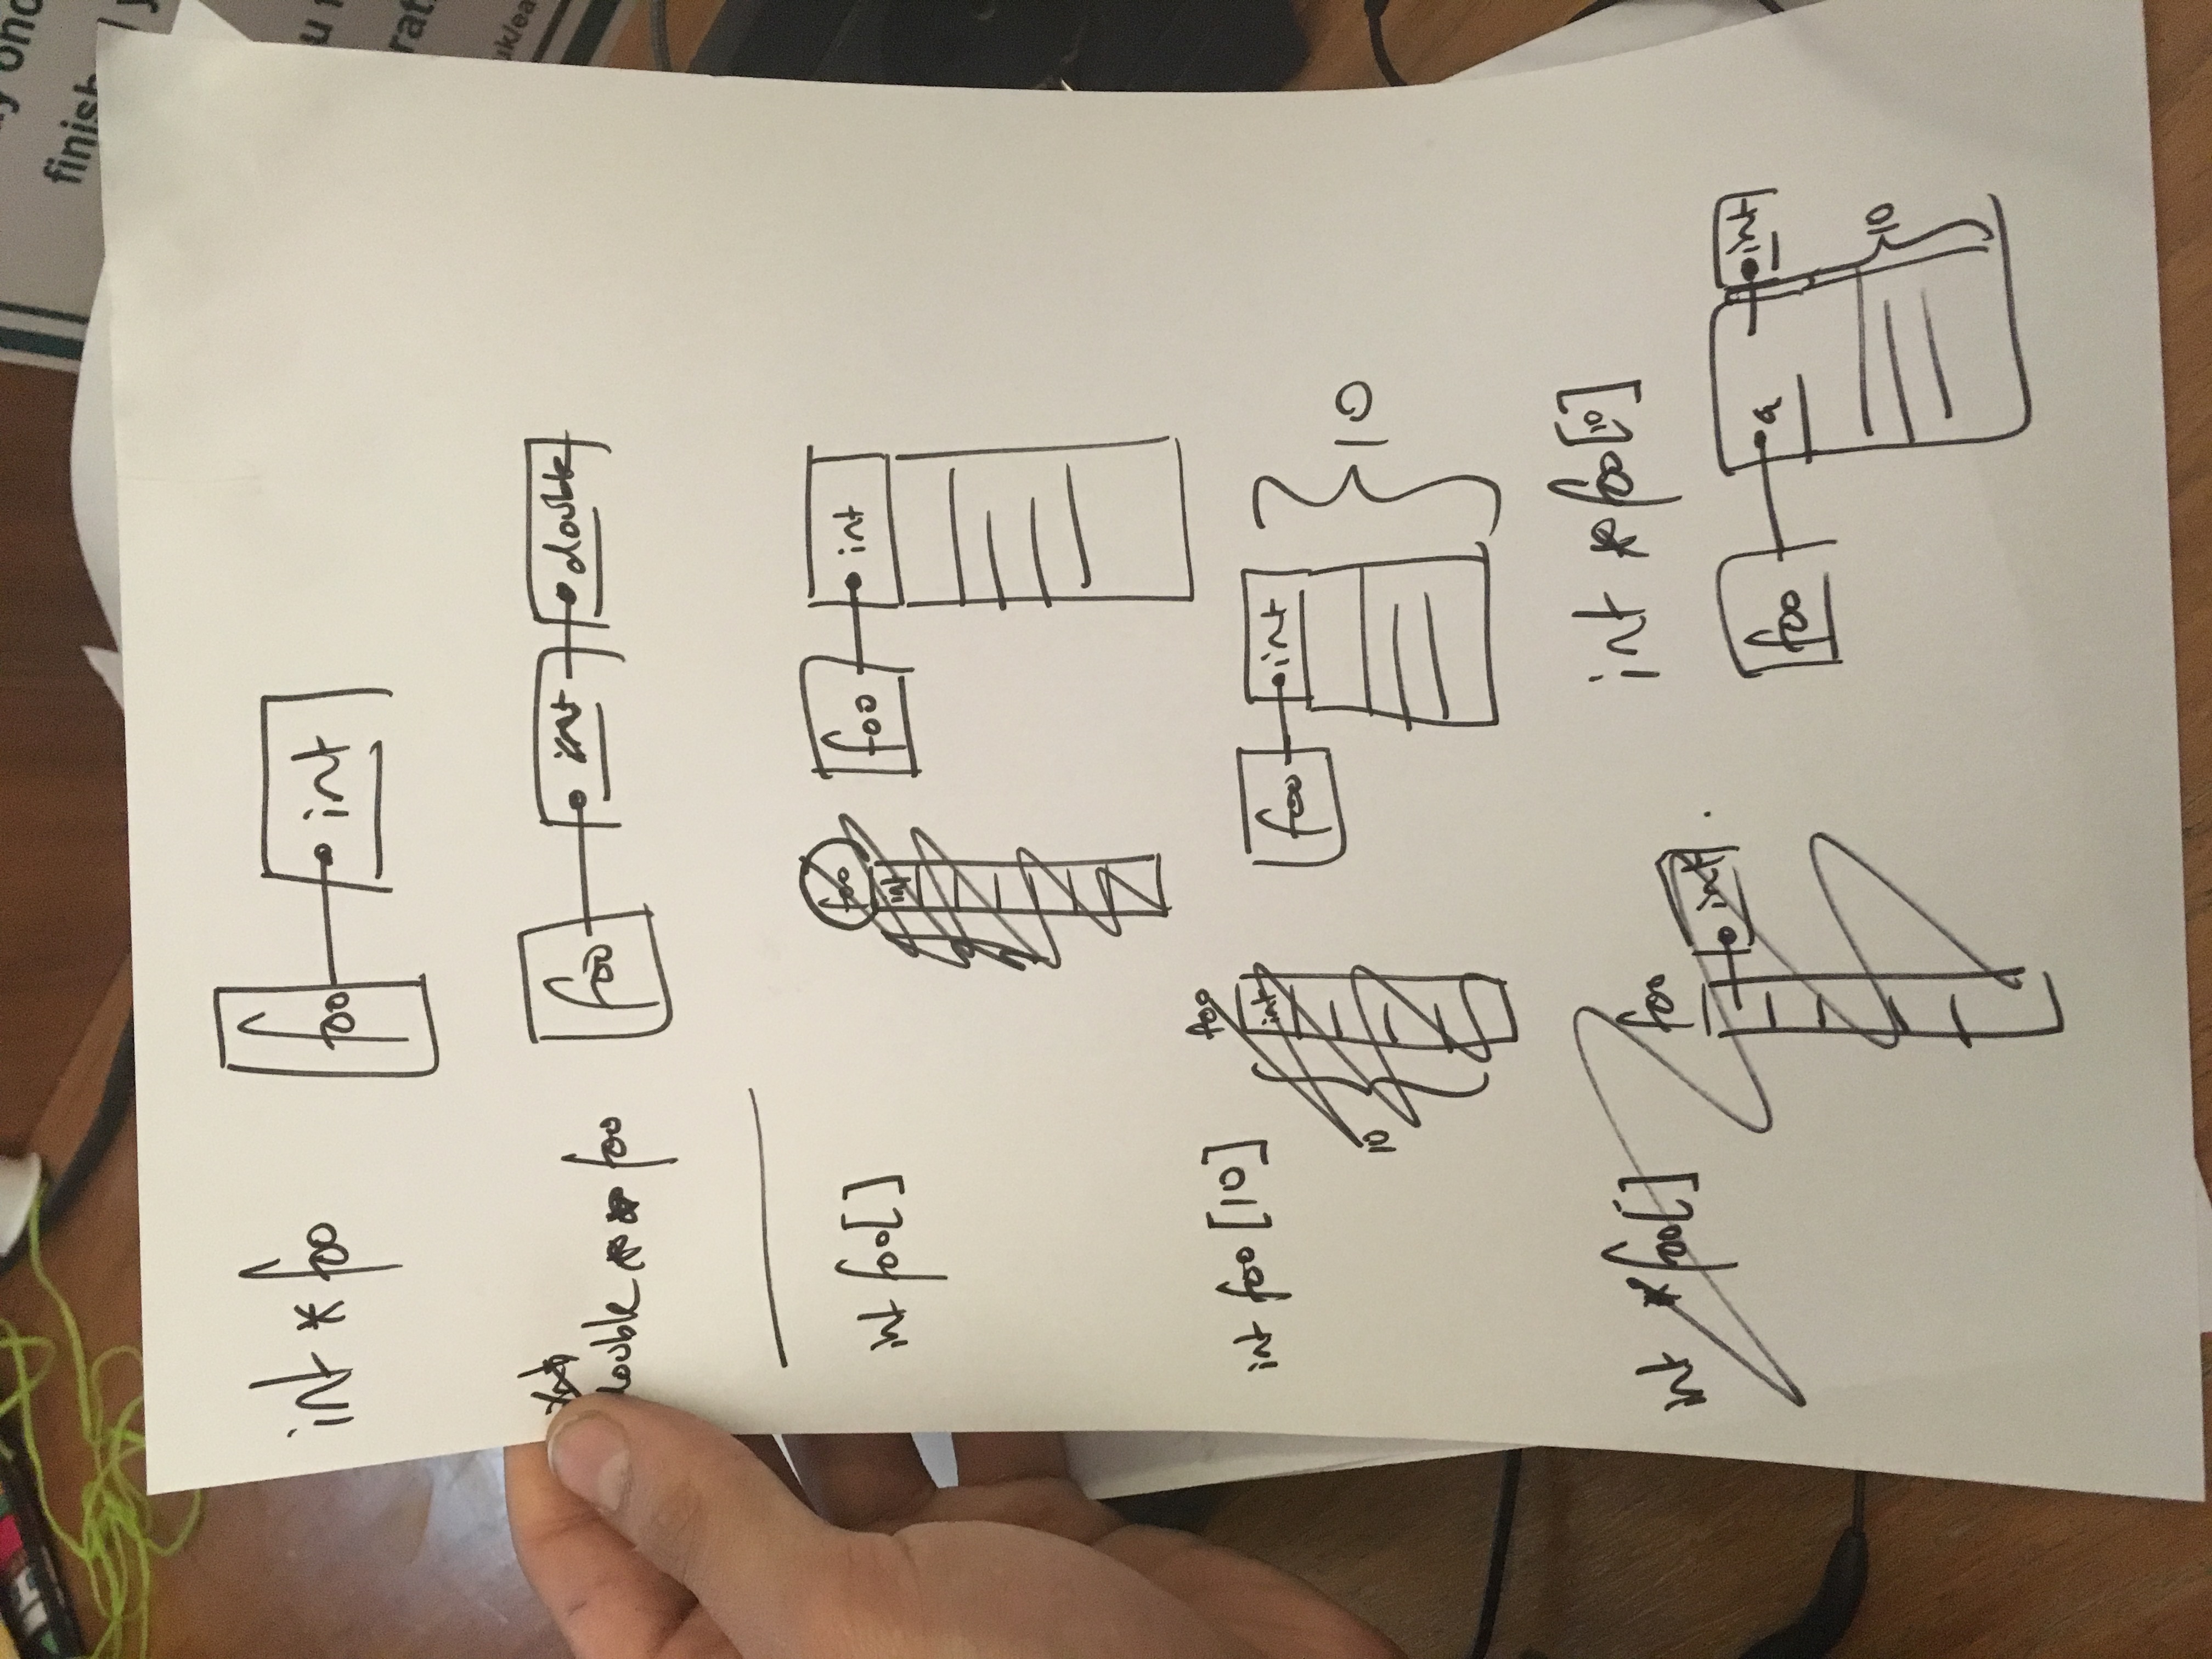 finish
int * foo
foo
int
int
double * * foo
foo
int
double
int foo[]
foo
int
foo
int
int foo [10]
foo
int
10
foo
int
10
int *foo[]
foo
int
int *foo[10]
foo
a
int
10